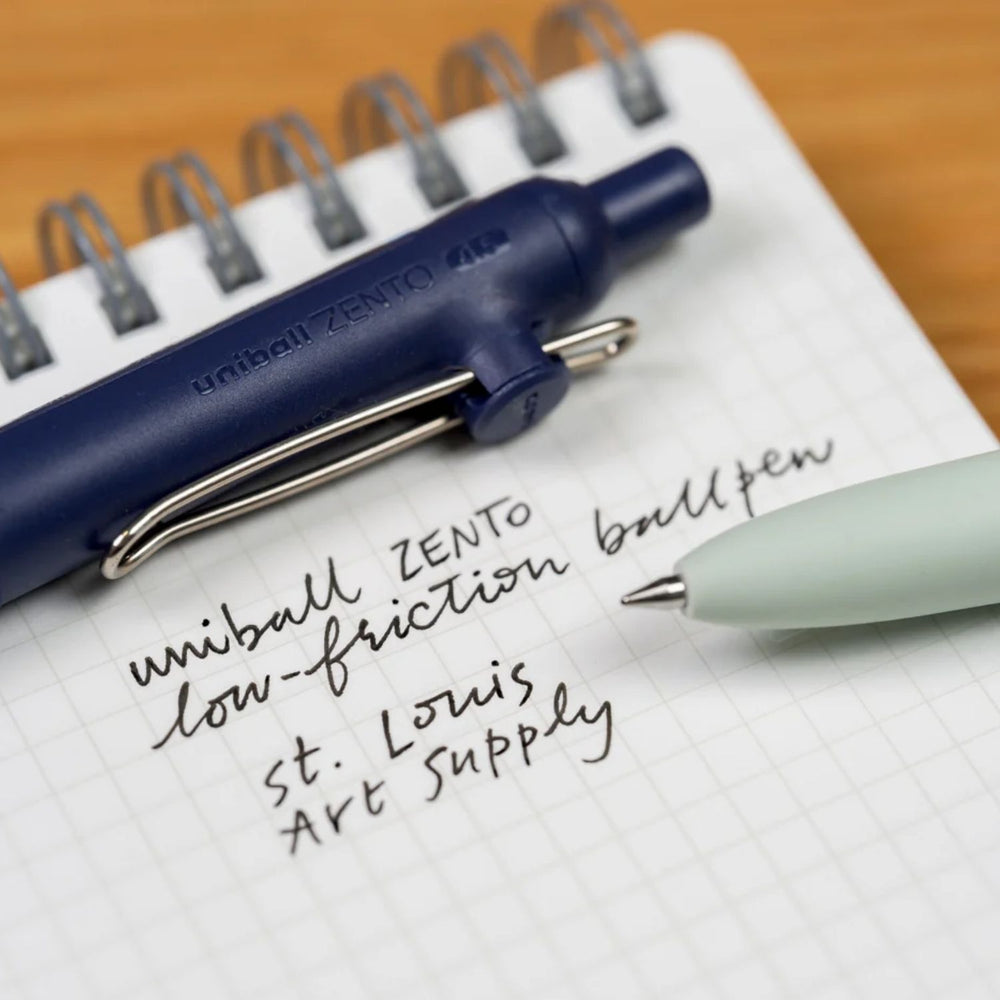 uniball ZENTO
uniball ZENTO
low-friction ballpen
St. Louis
Art Supply